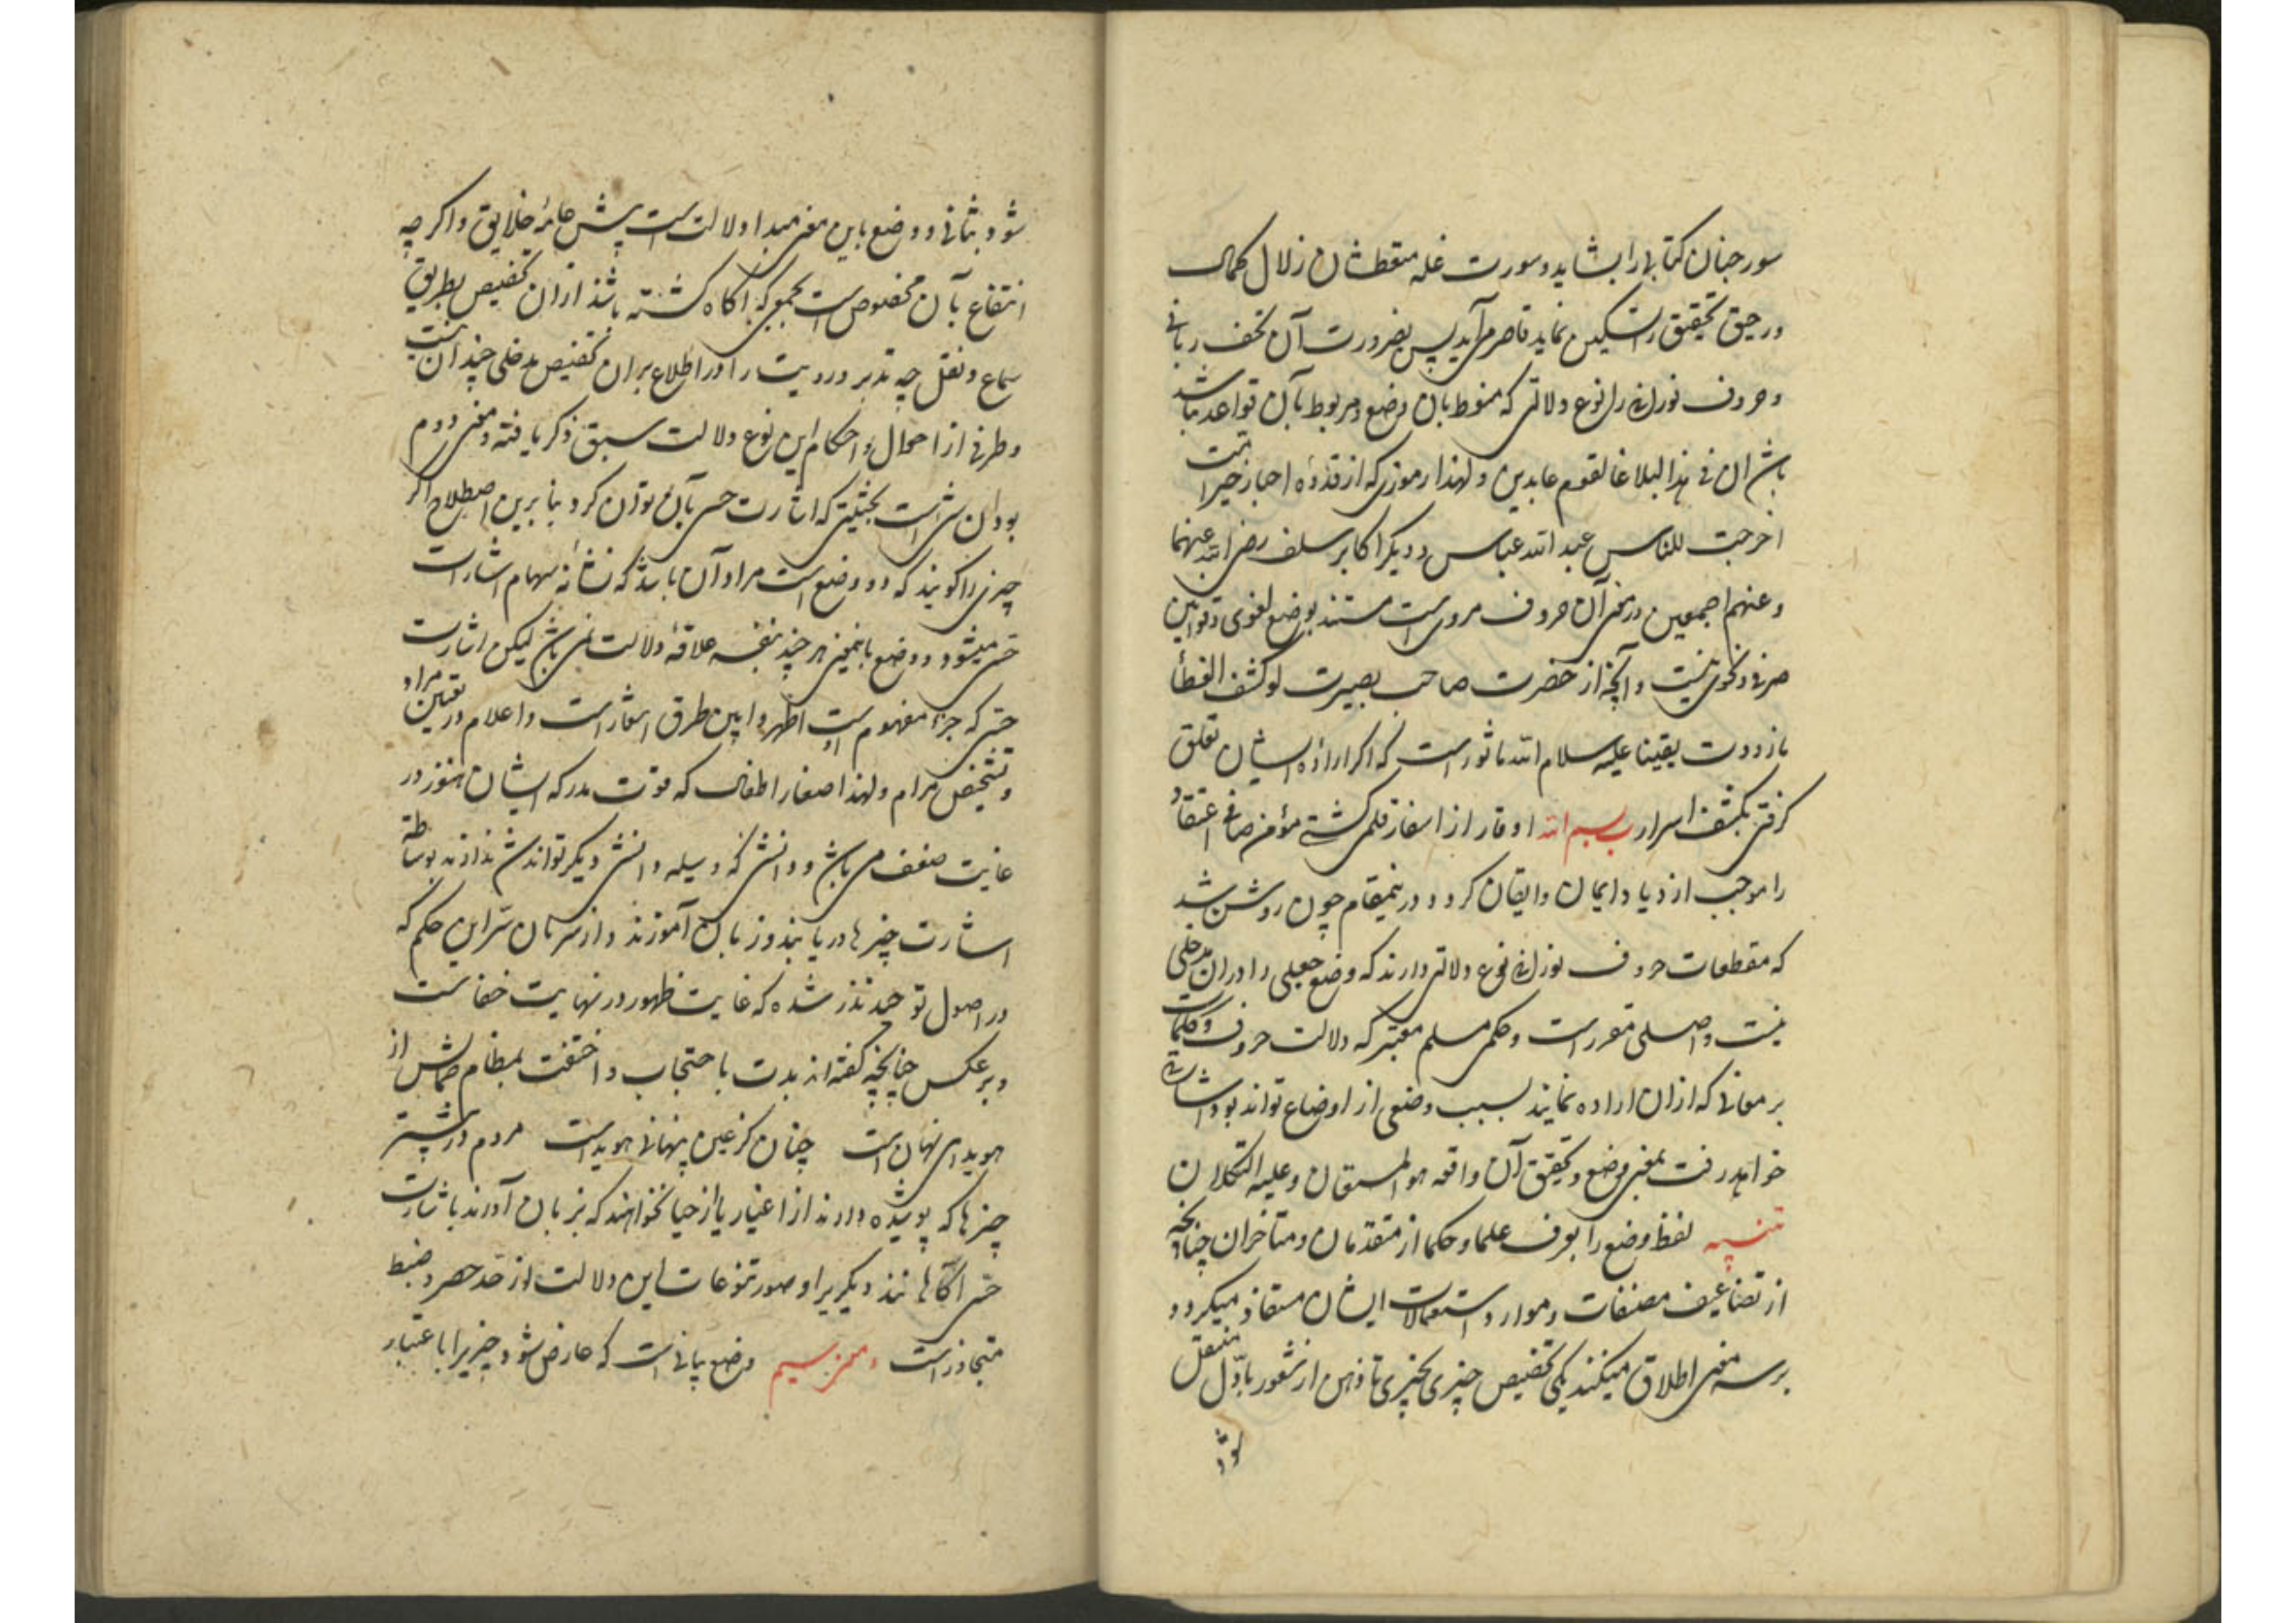 سور جنان کتابی را بشاید و سورت غله متعطشان زلال کمال
و رحیق تحقیق را تسکین نماید قاصر می آید پس بضرورت آن تحف ربانی
و حروف نورانی را نوع دلالتی که منوط بان وضع و مربوط بآن قواعد باشد
باشد ان فی هذا لبلاغا لقوم عابدین و لهذا رموزی که از قدوه احبار خیر امت
اخرجت للناس عبد الله عباس و دیگر اکابر سلف رضی الله عنهما
و عنهم اجمعین در معنی آن حروف مرویست مستند بوضع لغوی و قوانین
صرفی و نحوی نیست و آنچه از حضرت صاحب بصیرت لو کشف الغطأ
ما زددت یقینا علیه سلام الله ماثورست که اگر اراده ایشان تعلق
گرفتی بکشف اسرار ب بسم الله اوقار از اسفار قلمی گشتی مؤمن صافی اعتقاد
را موجب ازدیاد ایمان و ایقان کردد و درینمقام چون روشن شد
که مقطعات حروف نورانی نوع دلالتی دارند که وضع جعلی را دران مدخلی
نیست و اصلی مقررست و حکمی مسلم معتبر که دلالت حروف و کلمات
بر معانی که ازان اراده نمایند بسبب وضعی از اوضاع تواند بود اشارتی
خواهد رفت بمعنی وضع و تحقیق آن واقعه هو المستعان و علیه التکلان
تنبیه لفظ وضع را بعرف علما و حکما از متقدمان و متأخران چنانچه
از تضاعیف مصنفات و موارد استعمالات ایشان مستفاد میکردد
بر سه معنی اطلاق میکنند یکی تخصیص چیزی بچیزی تا ذهن از شعور باوّل منتقل
شود
شود بثانی و وضع باین معنی مبدا دلالت است پیش عامهٔ خلایق و اکر چه
انتفاع بآن مخصوص است بجمعی که آکاه کشته باشند ازان تخصیص بطریق
سماع و نقل چه تدبر و رویت را در اطلاع بران تخصیص مدخلی چندان نیست
و طرفی از احوال و احکام این نوع دلالت سبق ذکر یافته و معنی دوم
بودن شی است بحیثیتی که اشارت حسی بآن توان کرد و بنا برین اصطلاح اکر
چیزی را کویند که ذو وضع است مراد آن باشد که نشانه سهام اشارات
حسی میشود و وضع باینمعنی هر چند بنفسه علاقهٔ دلالت نمی باشد لیکن اشارت
حسی که جزء مفهوم اوست اظهر و ابین طرق اشعارست و اعلام در تعیین مراد
و تشخیص مرام و لهذا صغار اطفال که قوت مدرکه ایشان هنوز در
غایت ضعف می باشد و دانشی که وسیله دانش دیکر تواند شد ندارند بوساطة
اشارت چیزها دریابند و زبان آموزند و ازسریان سّر این حکم که
در اصول توحید مقرر شده که غایت ظهور در نهایت خفاست
و بر عکس چنانچه کفته اند بدت باحتجاب و اختفت بمظاهر
هویدای نهان است چنان کز عین پنهانی هویداست مردم در بیشتر
چیزها که پوشیده دارند از اغیار یا از حیا نخواهند که بزبان آورند باشارت
حسی اکتفا نمایند دیکر برا و صور تنوعات این دلالت از حد حصر و ضبط
متجاوزست و معنی سیم وضع هیأتی است که عارض شود چیزیرا باعتبار